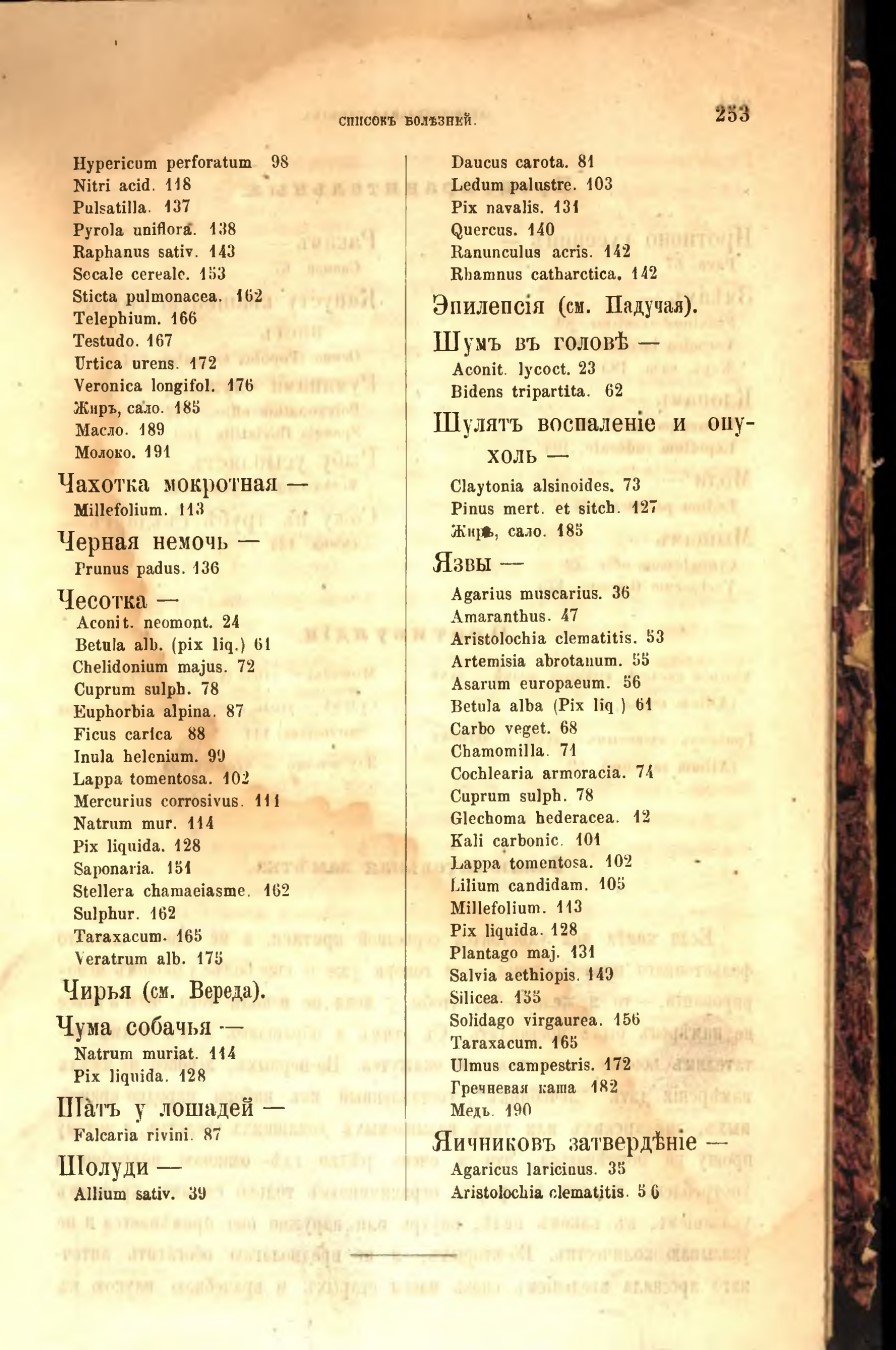 СПИСОКЪ БОЛѢЗНЕЙ.
253
Hypericum perforatum 98
Nitri acid. 118
Pulsatilla. 137
Pyrola uniflora. 138
Raphanus sativ. 143
Secale cereale. 153
Sticta pulmonacea. 162
Telephium. 166
Testudo. 167
Urtica urens. 172
Veronica longifol. 176
Жиръ, сало. 185
Масло. 189
Молоко. 191
Чахотка мокротная —
Millefolium. 113
Черная немочь —
Prunus padus. 136
Чесотка —
Aconit. neomont. 24
Betula alb. (pix liq.) 61
Chelidonium majus. 72
Cuprum sulph. 78
Euphorbia alpina. 87
Ficus carica 88
Inula helenium. 99
Lappa tomentosa. 102
Mercurius corrosivus. 111
Natrum mur. 114
Pix liquida. 128
Saponaria. 151
Stellera chamaeiasme. 162
Sulphur. 162
Taraxacum. 165
Veratrum alb. 175
Чирья (см. Вереда).
Чума собачья —
Natrum muriat. 114
Pix liquida. 128
Шатъ у лошадей —
Falcaria rivini. 87
Шолуди —
Allium sativ. 39
Daucus carota. 81
Ledum palustre. 103
Pix navalis. 131
Quercus. 140
Ranunculus acris. 142
Rhamnus catharctica. 142
Эпилепсія (см. Падучая).
Шумъ въ головѣ —
Aconit. lycoct. 23
Bidens tripartita. 62
Шулятъ воспаленіе и опу-
холь —
Claytonia alsinoides. 73
Pinus mert. et sitch. 127
Жиръ, сало. 185
Язвы —
Agarius muscarius. 36
Amaranthus. 47
Aristolochia clematitis. 53
Artemisia abrotanum. 55
Asarum europaeum. 56
Betula alba (Pix liq ) 61
Carbo veget. 68
Chamomilla. 71
Cochlearia armoracia. 74
Cuprum sulph. 78
Glechoma hederacea. 12
Kali carbonic. 101
Lappa tomentosa. 102
Lilium candidam. 105
Millefolium. 113
Pix liquida. 128
Plantago maj. 131
Salvia aethiopis. 149
Silicea. 155
Solidago virgaurea. 156
Taraxacum. 165
Ulmus campestris. 172
Гречневая каша 182
Медь. 190
Яичниковъ затвердѣніе —
Agaricus laricinus. 35
Aristolochia clematitis. 56